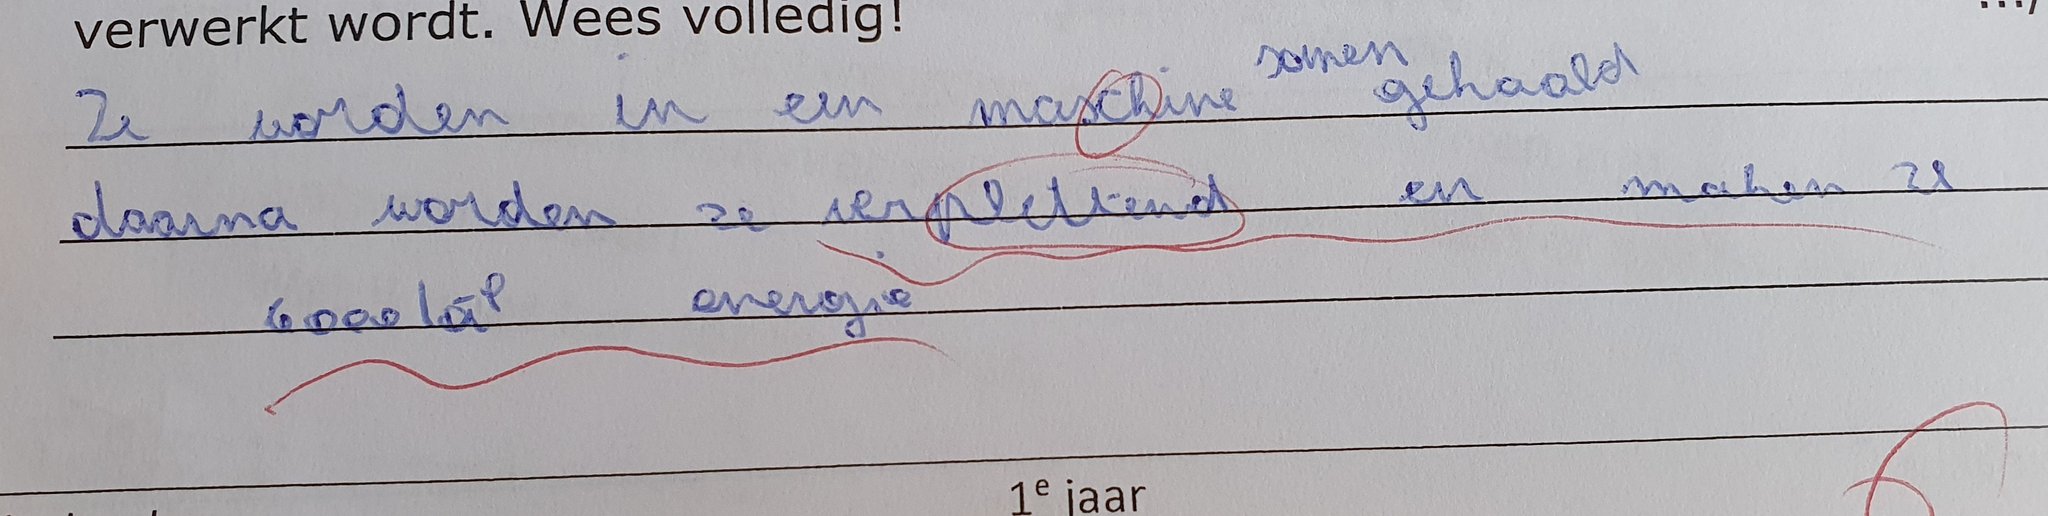 verwerkt wordt. Wees volledig!
Ze worden in een maschine samen gehaald
daarna worden ze verplettend en maken ze
energie
1e jaar